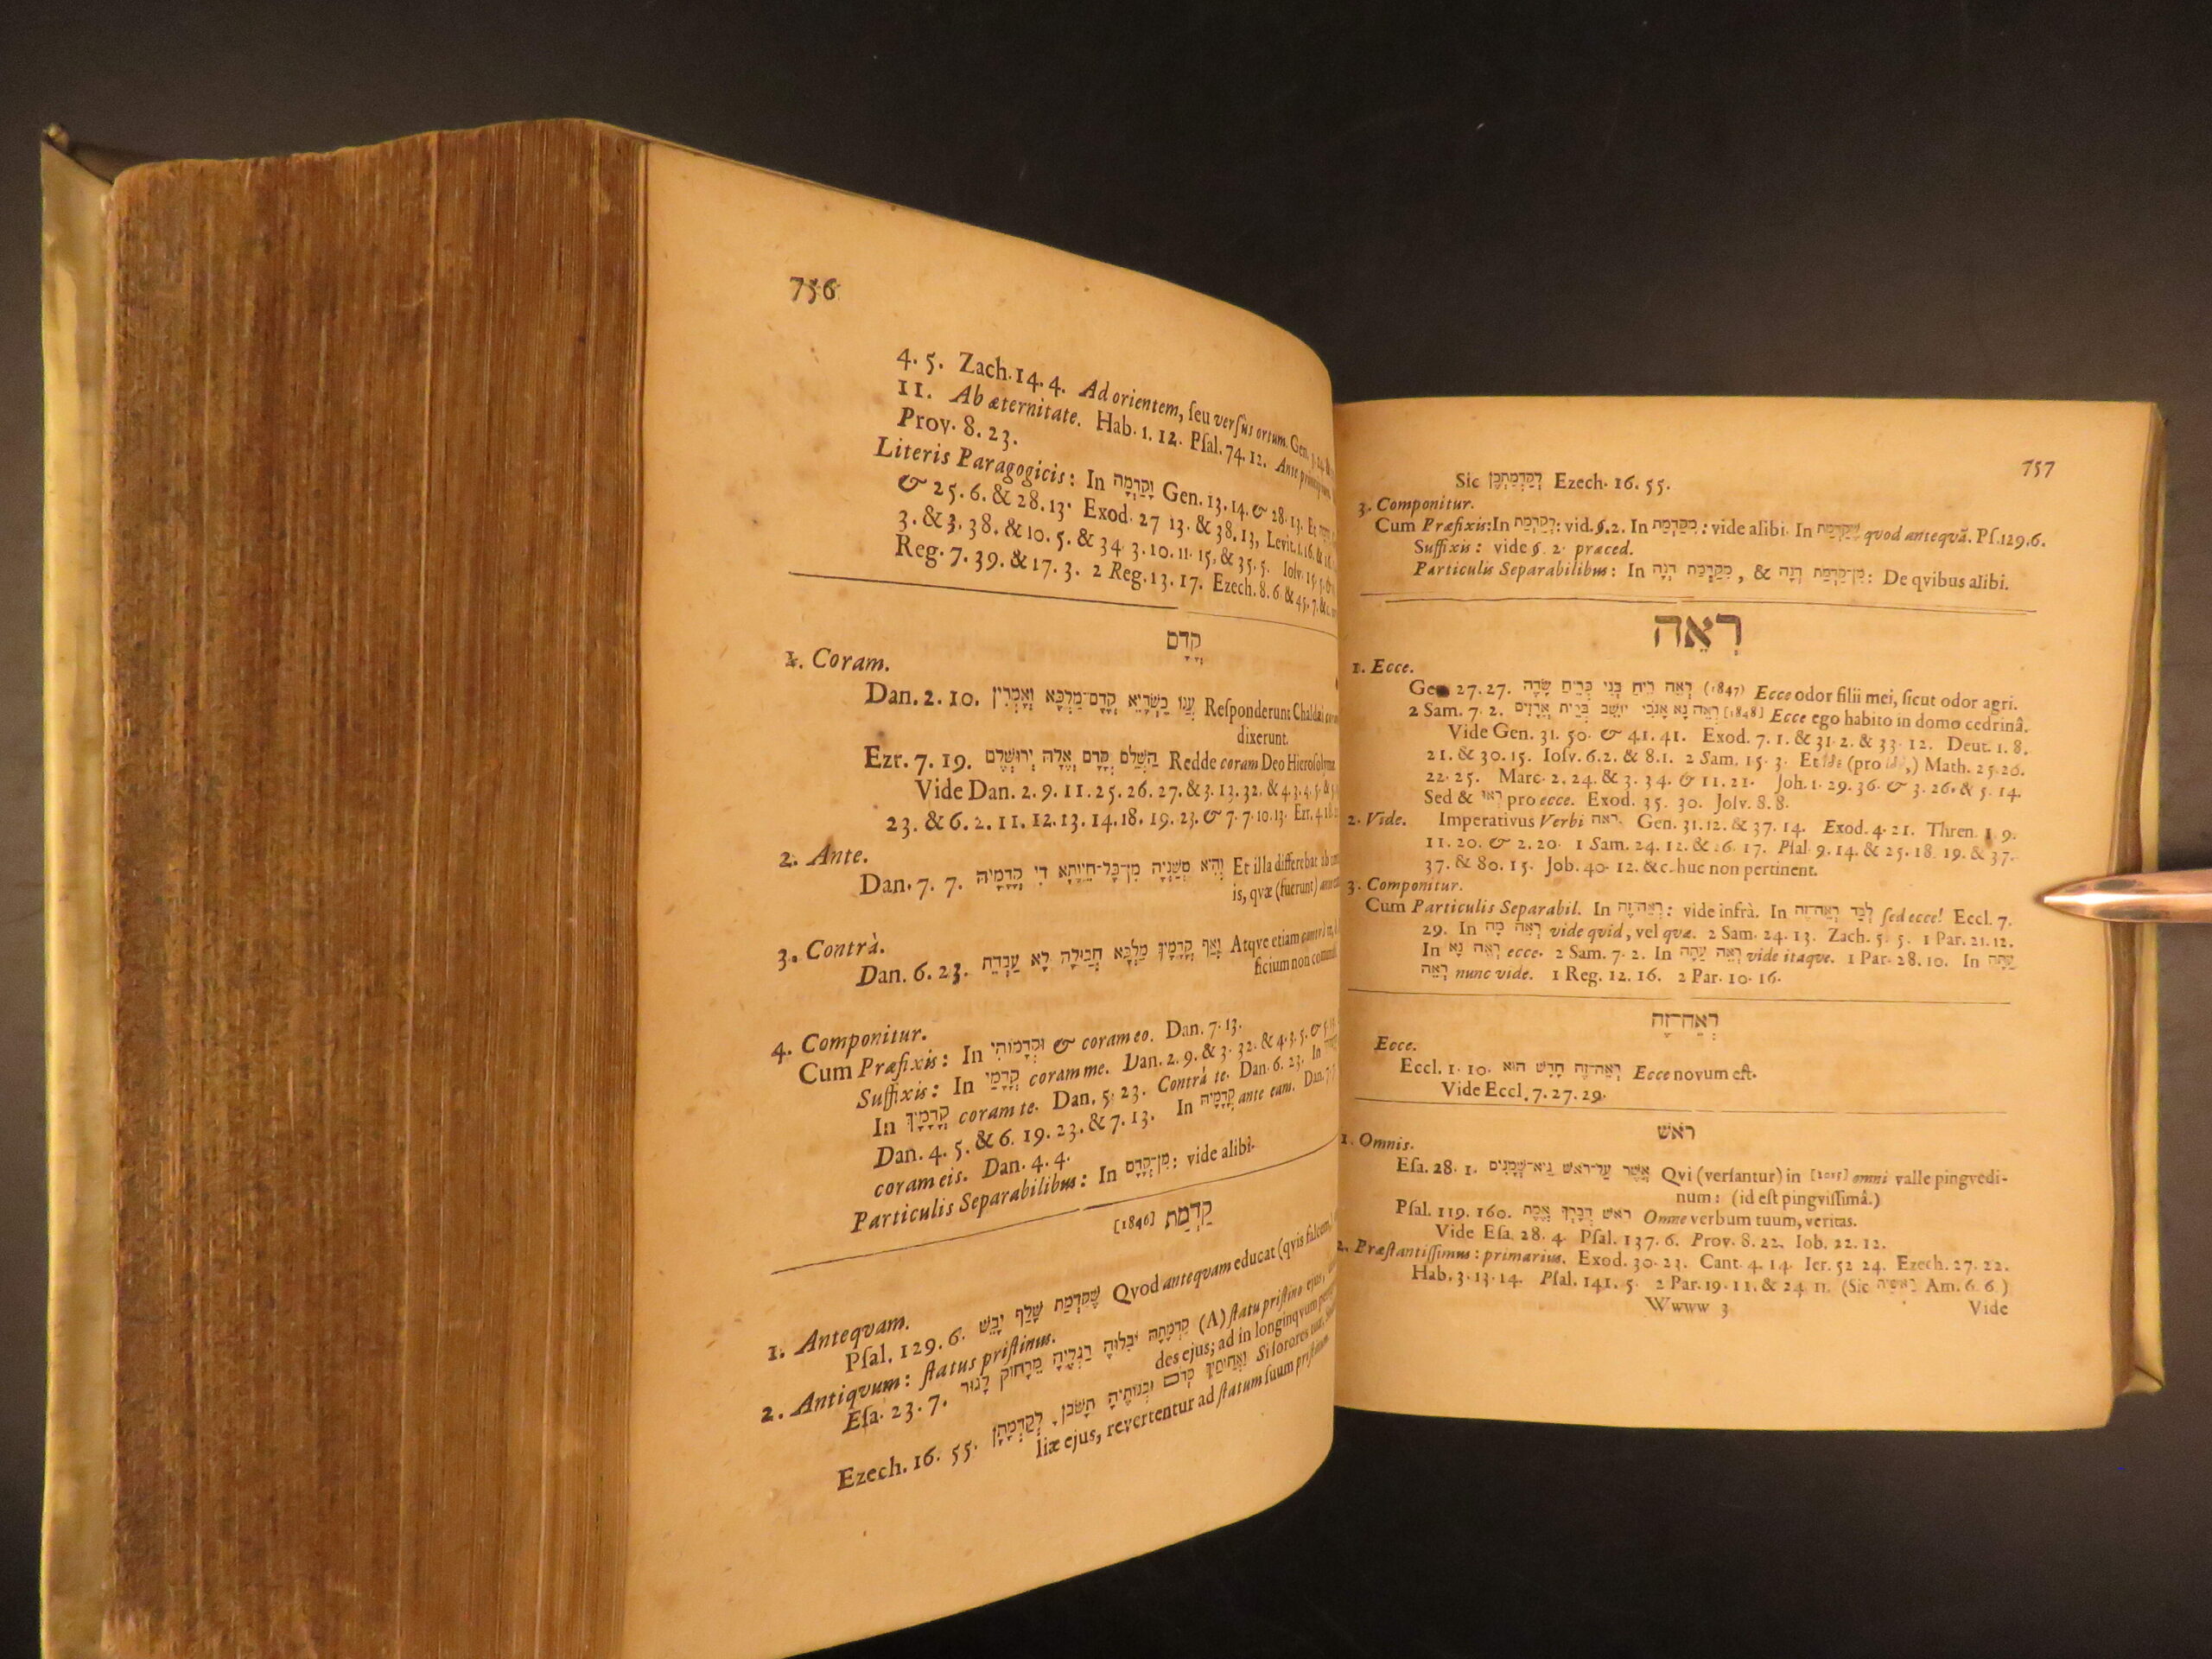 756
4. 5. Zach. 14. 4. Ad orientem, ſeu verſùs ortum. Gen.
11. Ab æternitate. Hab. 1. 12. Pſal. 74. 12. Ante
Prov. 8. 23.
Literis Paragogicis: In וָקֵדְמָה Gen. 13. 14. & 28. 13. Et
& 25. 6. & 28. 13. Exod. 27 13. & 38. 13, Levit. 1. 16. &
3. & 3. 38. & 10. 5. & 34. 3. 10. 11. 15. & 35. 5. Ioſv. 15. 5.
Reg. 7. 39. & 17. 3. 2 Reg. 13. 17. Ezech. 8. 6. & 45. 7. &c.
קֳדָם
1. Coram.
Dan. 2. 10. עֲנוֹ כַשְׂדָּיֵא קֳדָם־מַלְכָּא וְאָמְרִין Reſponderunt Chaldæi
dixerunt.
Ezr. 7. 19. הַשְׁלֵם קֳדָם אֱלָהּ יְרוּשְׁלֶם Redde coram Deo
Vide Dan. 2. 9. 11. 25. 26. 27. & 3. 13. 32. & 4. 3. 4. 5. &
23. & 6. 2. 11. 12. 13. 14. 18. 19. 23. & 7. 7. 10. 13. Ezr. 4. 18.
2. Ante.
Dan. 7. 7. וְהִיא מְשַׁנְּיָה מִן־כָּל־חֵיוָתָא דִּי קָדָמַיהּ Et illa differebat ab
is, qvæ (fuerunt)
3. Contrà.
Dan. 6. 23. וְאַף קָדָמָיךְ מַלְכָּא חֲבוּלָה לָא עַבְדֵת Atqve etiam
ficium non
4. Componitur.
Cum Præfixis: In וּקְדָמוֹהִי & coram eo. Dan. 7. 13.
Suffixis: In קָדָמַי coram me. Dan. 2. 9. & 3. 32. & 4. 3. 5. &
In קָדָמָיךְ coram te. Dan. 5. 23. Contrà te. Dan. 6. 23. In
Dan. 4. 5. & 6. 19. 23. & 7. 13. In קָדָמַיהּ ante eam. Dan. 7.
coram eis. Dan. 4. 4.
Particulis Separabilibus: In מִן־קֳדָם: vide alibi.
קַדְמַת [1846]
1. Anteqvam.
Pſal. 129. 6. שֶׁקַּדְמַת שָׁלַף יָבֵשׁ Qvod anteqvam educat (qvis falcem)
2. Antiqvum: ſtatus priſtinus.
Eſa. 23. 7. קַדְמָתָהּ יֹבִלוּהָ רַגְלֶיהָ מֵרָחוֹק לָגוּר (A) ſtatu priſtino ejus,
des ejus; ad in longinqvum
Ezech. 16. 55. Si ſorores tuæ,
liæ ejus, revertentur ad ſtatum ſuum priſtinum.
757
Sic לְקַדְמַתְכֶן Ezech. 16. 55.
3. Componitur.
Cum Præfixis: In לְקַדְמַת: vid. §. 2. In מִקַּדְמַת: vide alibi. In שֶׁקַּדְמַת quod antequã. Pſ. 129. 6.
Suffixis: vide §. 2. præced.
Particulis Separabilibus: In מִקַּדְמַת דְּנָה, & מִן־קַדְמַת דְּנָה: De qvibus alibi.
רְאֵה
1. Ecce.
Gen 27. 27. רְאֵה רֵיחַ בְּנִי כְּרֵיחַ שָׂדֶה (1847) Ecce odor filii mei, ſicut odor agri.
2 Sam. 7. 2. רְאֵה נָא אָנֹכִי יוֹשֵׁב בְּבֵית אֲרָזִים [1848] Ecce ego habito in domo cedrinâ.
Vide Gen. 31. 50. & 41. 41. Exod. 7. 1. & 31. 2. & 33. 12. Deut. 1. 8.
21. & 30. 15. Ioſv. 6. 2. & 8. 1. 2 Sam. 15. 3. Et (pro ,) Math. 25. 26.
22. 25. Marc. 2. 24. & 3. 34. & 11. 21. Joh. 1. 29. 36. & 3. 26. & 5. 14.
Sed & רְאוּ pro ecce. Exod. 35. 30. Joſv. 8. 8.
2. Vide. Imperativus Verbi ראה. Gen. 31. 12. & 37. 14. Exod. 4. 21. Thren. 1. 9.
11. 20. & 2. 20. 1 Sam. 24. 12. & 26. 17. Pſal. 9. 14. & 25. 18. 19. & 37.
37. & 80. 15. Job. 40. 12. &c. huc non pertinent.
3. Componitur.
Cum Particulis Separabil. In רְאֵה־זֶה: vide infrà. In לְבַד רְאֵה־זֶה ſed ecce! Eccl. 7.
29. In רְאֵה מָה vide quid, vel quæ. 2 Sam. 24. 13. Zach. 5. 5. 1 Par. 21. 12.
In רְאֵה נָא ecce. 2 Sam. 7. 2. In רְאֵה עַתָּה vide itaque. 1 Par. 28. 10. In עַתָּה
רְאֵה nunc vide. 1 Reg. 12. 16. 2 Par. 10. 16.
רְאֵה־זֶה
Ecce.
Eccl. 1. 10. רְאֵה־זֶה חָדָשׁ הוּא Ecce novum eſt.
Vide Eccl. 7. 27. 29.
ראשׁ
1. Omnis.
Eſa. 28. 1. אֲשֶׁר עַל־רֹאשׁ גֵּיא־שְׁמָנִים Qvi (verſantur) in omni valle pingvedi-
num: (id eſt pingviſſimâ.)
Pſal. 119. 160. רֹאשׁ דְּבָרְךָ אֱמֶת Omne verbum tuum, veritas.
Vide Eſa. 28. 4. Pſal. 137. 6. Prov. 8. 22. Iob. 22. 12.
2. Præſtantiſſimus: primarius. Exod. 30. 23. Cant. 4. 14. Ier. 52 24. Ezech. 27. 22.
Hab. 3. 13. 14. Pſal. 141. 5. 2 Par. 19. 11. & 24. 11. (Sic Am. 6. 6.)
Wwww 3 Vide